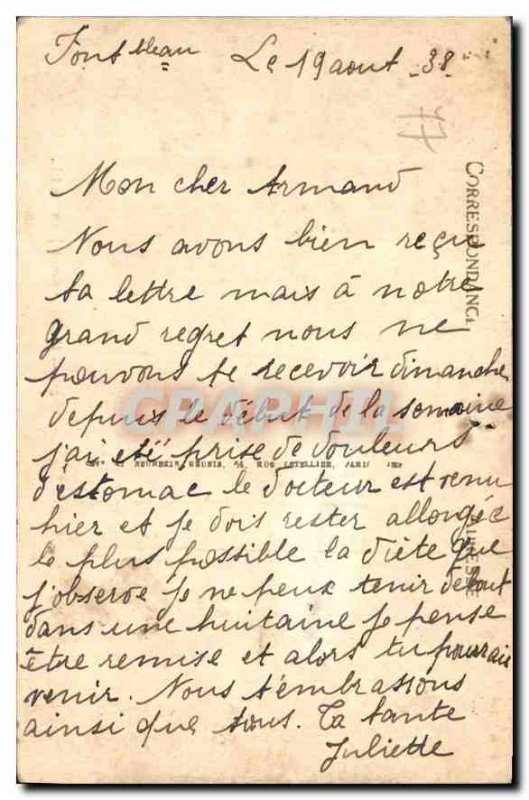 Font bleau Le 19 aout -38
77
Mon cher Armand
CORRESPONDANCE
Nous avons bien reçu
ta lettre mais à notre
grand regret nous ne
pouvons te recevoir dimanche
depuis le début de la semaine
CPARAPHIL
j'ai été prise de douleurs
RÉUNIS, RUE LETELLIER, PARIS
d'éstomac le docteur est venu
hier et je dois rester allongée
le plus possible la diète que
ADRESSE
j'observe je ne peux tenir debout
dans une huitaine je pense
être remise et alors tu pourrais
venir. Nous t'embrassons
ainsi que tous. Ta tante
Juliette